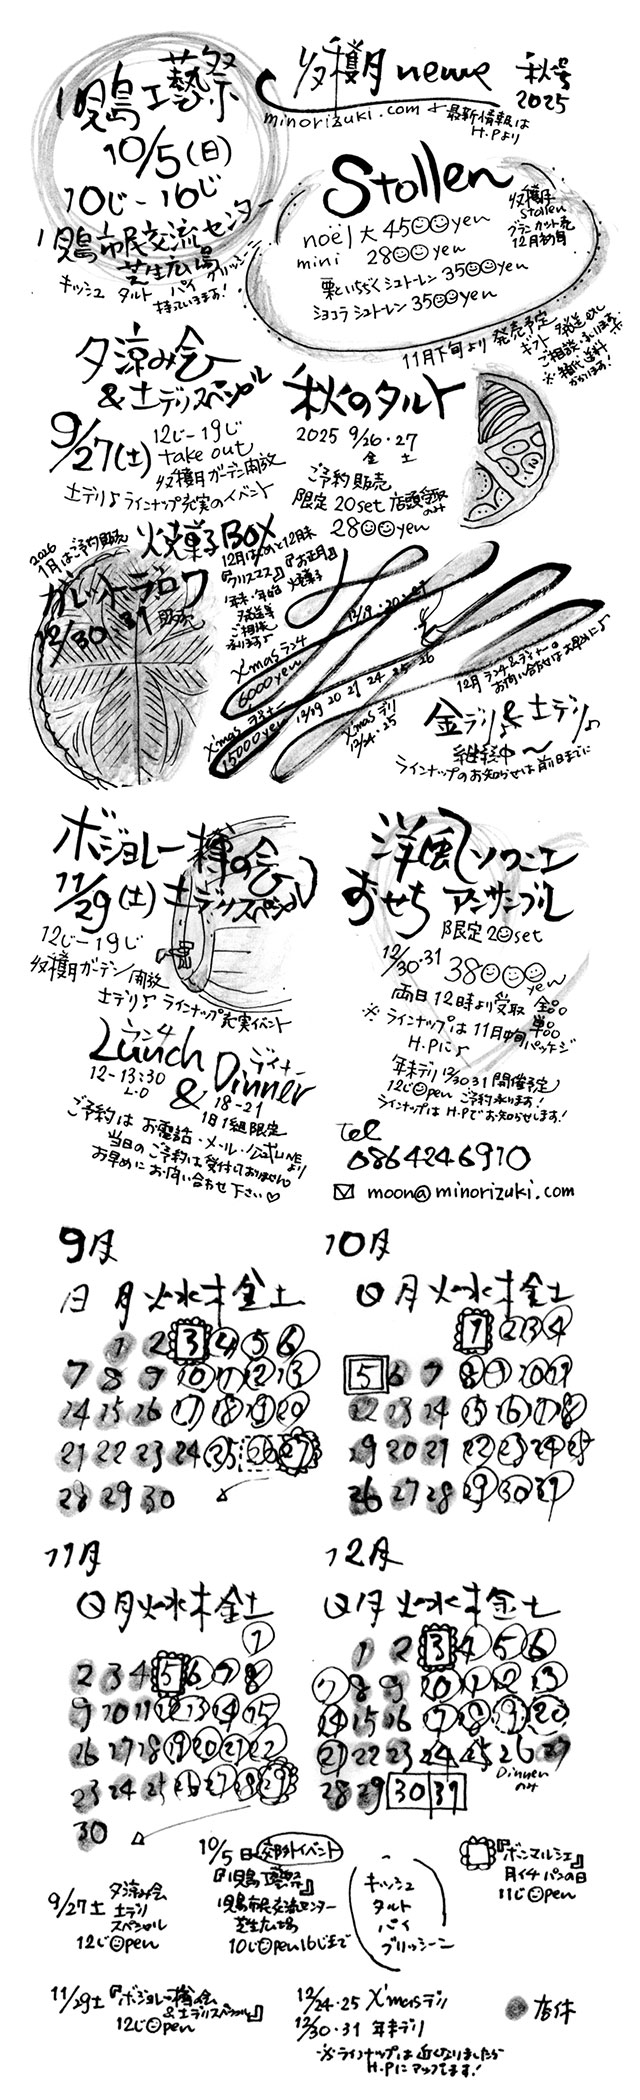 児島工藝祭
10/5(日)
10じ-16じ
児島市民交流センター
芝生広場
キッシュ タルト パイ ブリッシーニ
持っていきます!
収穫月 news
秋号
2025
minorizuki.com
最新情報は
H.Pより
Stollen
noël 大 4500yen
mini 2800yen
栗といちぢく シュトーレン 3500yen
ショコラ シュトーレン 3500yen
収穫月
Stollen
12月初旬
11月下旬より 発売予定
ギフト 発送etc
ご相談承ります。
※箱代 送料
かかります!
夕涼み会
&土デリスペシャル
9/27(土)
12じ-19じ
take out
収穫月ガーデン開放
土デリ♪ラインナップ充実のイベント
秋のタルト
2025 9/26・27
金 土
ご予約販売
限定20set 店頭受取のみ
2800yen
2026
1月はご予約販売
ガレットデロワ
12/30・31
焼菓子BOX
12月はじめ〜12月末
『クリスマス』『お正月』
年末・年始 焼菓子
発送等
ご相談
承ります♪
X'mas ランチ
6000yen
12/19・20・21
X'mas ディナー
15000yen
12/19 20 21 24 25 26
X'mas デリ
12/24・25
12月 ランチ&ディナーの
お問い合せはお早めに♪
金デリ♪&土デリ♪
継続中〜
ラインナップのお知らせは前日までに
ボジョレー樽の会
11/29(土)土デリスペシャル
12じ-19じ
収穫月ガーデン開放
土デリ♪ラインナップ充実イベント
洋風
おせち アンサンブル
限定20set
12/30・31 38000yen
両日12時より受取
※ラインナップは11月中旬
H.Pに♪
年末デリ12/30 31開催予定
12じOpen ご予約承ります!
ラインナップはH.Pでお知らせします!
ランチ
Lunch
12-13:30
L.O
&
ディナー
Dinner
18-21
1日1組限定
ご予約は お電話・メール・公式LINEより
当日のご予約は受付しておりません
お早めにお問い合わせ下さい♡
tel
0864246910
moon@minorizuki.com
9月
日 月 火 水 木 金 土
1 2 3 4 5 6
7 8 9 10 11 12 13
14 15 16 17 18 19 20
21 22 23 24 25 26 27
28 29 30
10月
日 月 火 水 木 金 土
1 2 3 4
5 6 7 8 9 10 11
12 13 14 15 16 17 18
19 20 21 22 23 24 25
26 27 28 29 30 31
11月
日 月 火 水 木 金 土
1
2 3 4 5 6 7 8
9 10 11 12 13 14 15
16 17 18 19 20 21 22
23 24 25 26 27 28 29
30
12月
日 月 火 水 木 金 土
1 2 3 4 5 6
7 8 9 10 11 12 13
14 15 16 17 18 19 20
21 22 23 24 25 26 27
Dinnerのみ
28 29 30 31
9/27土 夕涼み会
土デリ
スペシャル
12じOpen
10/5日 郊外イベント
『児島工藝祭』
児島市民交流センター
芝生広場
10じOpen16じまで
キッシュ
タルト
パイ
ブリッシーニ
『ボンマルシェ』
月イチ パンの日
11じOpen
11/29土『ボジョレー樽の会
&土デリスペシャル』
12じOpen
12/24・25 X'masデリ
12/30・31 年末デリ
※ラインナップは近くなりましたら
H.Pにアップします!
店休